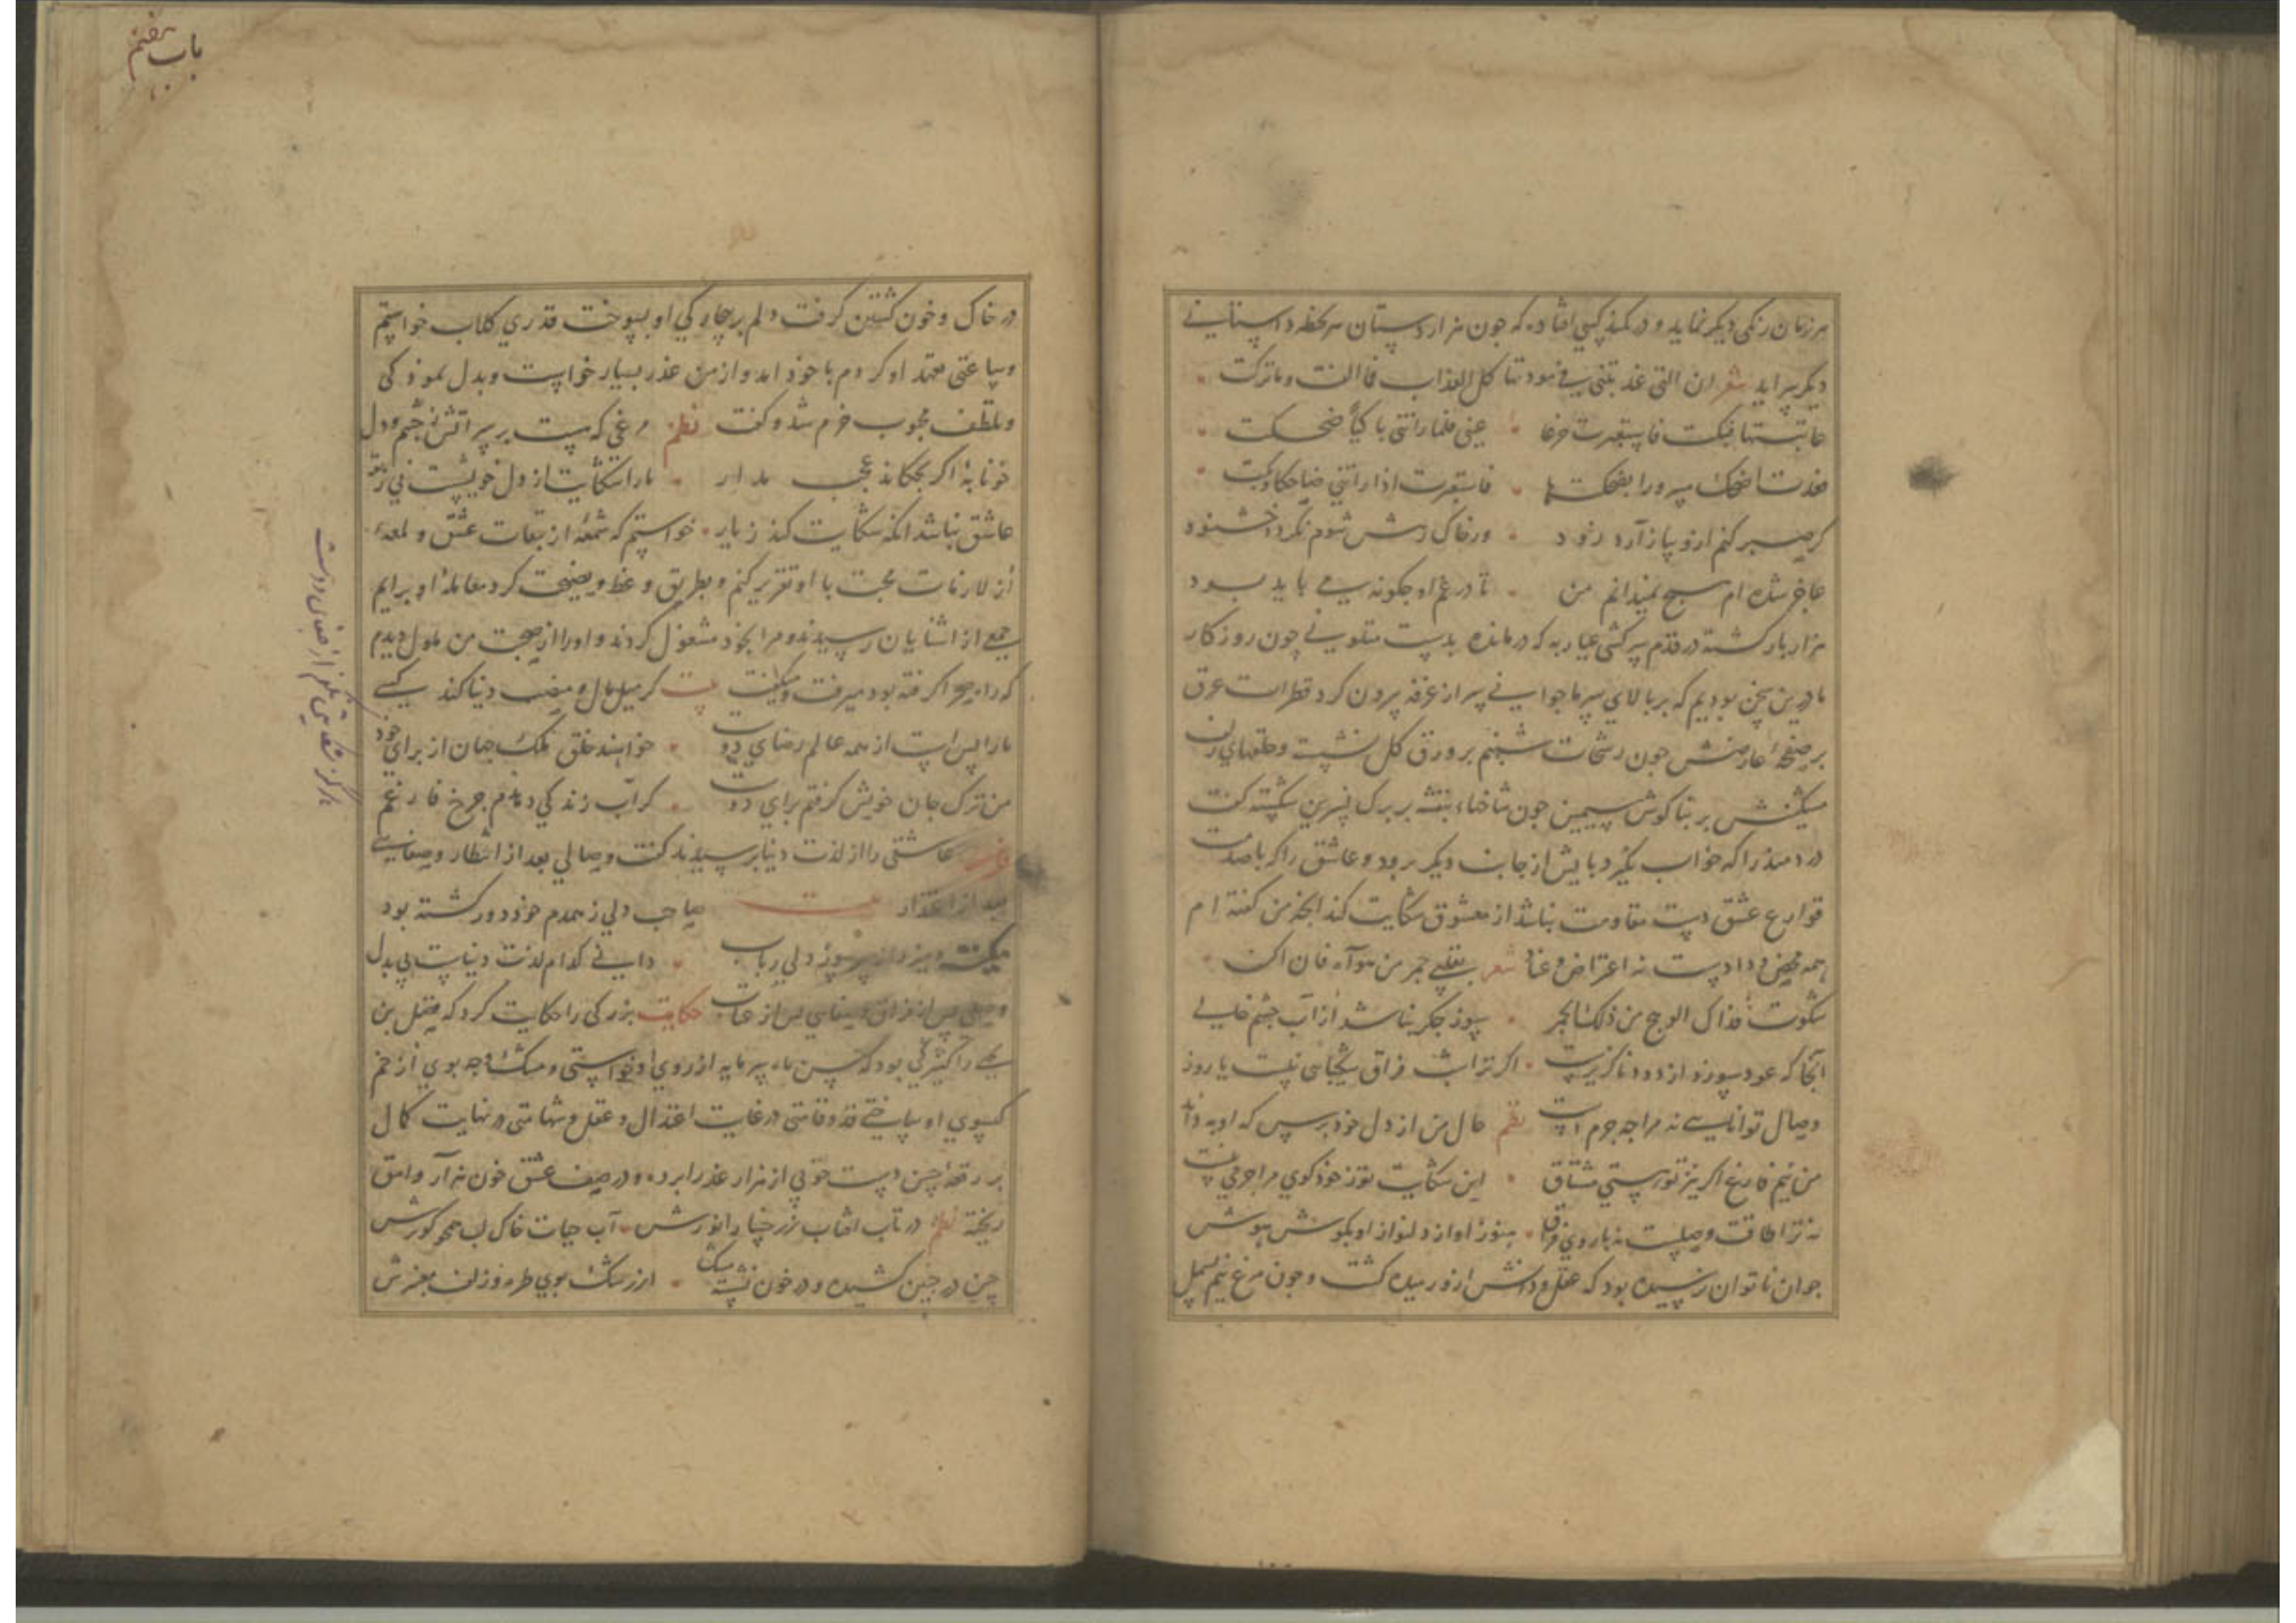 هر زمان رنکی دیکر نماید و در کمند کسی افتاده که چون هزار دستان هر لحظه داستانی
دیکر سراید شعر ان التی عذبتنی فی مودتها کل العذاب فما ابقت وما ترکت
عاتبتها فبکت فاستعبرت جزعا عینی فلما راتنی باکیا ضحکت
فعدت اضحک مسرورا بضحکتها فاستعبرت اذ راتنی ضاحکا وبکت
کر صبر کنم ازو نیازارد زود ور خاک رهش شوم نکردد خشنود
عاجز شده ام هیچ نمیدانم من تا در غم او چکونه می باید بود
هزار بار کشته در قدم سرکشی عیار به که درمانده بدست متلونی چون روزکار
ما درین سخن بودیم که بر بالای سر ما جوانی سر از غرفه برون کرد قطرات عرق
بر صفحه عارضش چون رشحات شبنم بر ورق کل نشسته و حلقهای زلف
مشکینش بر بناکوش سیمین چون شاخهاء بنفشه بر برک نسرین شکسته کفت
دردمند را که خواب نکیرد بایش از جانب دیکر برود و عاشق را که با صدمت
قوارع عشق دست مقاومت نباشد از معشوق شکایت کند انچه من کفته ام
همه محض وداد است نه اعتراض و عناد شعر بقلبی جمر من هواه فان اکن
شکوت فذاک الوهج من ذلک الجمر سوز جکر نباشد از آب چشم خالی
آنجا که عود سوزد از دود ناکزیرست اکر ترا شب فراق شکیبایی نیست یا روز
وصال توانایی نه مرا چه جرم است نظم حال من از دل خود برس که او به داند
من نیم فارغ اکر نیز تو هستی مشتاق این شکایت تو ز خود کوی مرا جرمی نیست
نه ترا طاقت وصلست نه یاروی فراق هنوز اواز دلنواز او بکوش هوش
جوان ناتوان نرسیده بود که عقل و دانش ازو رمیده کشت و چون مرغ نیم بسمل
باب هفتم
در خاک و خون کشتن کرفت دلم بر بیچارکی او بسوخت قدری کلاب خواستم
وساعتی تعهد او کردم با خود امد و از من عذر بسیار خواست و بدل نموذکی
وتلطف محبوب خرم شد و کفت نظم مرغی که هست بر سر آتش ز چشم و دل
خونابه اکر بچکاند عجب مدار ما را شکایت از دل خویشست نی ز تو
عاشق نباشد انکه شکایت کند ز یار خواستم که شمهٔ از تبعات عشق و لمعهٔ
از لازمات محبت با او تقریر کنم و بطریق وعظ و نصیحت کرد معامله او برایم
جمعی از اشنایان رسیدند و مرا بخود مشغول کردند و او را از صحبت من ملول دیدم
که راه صحرا کرفته بود میرفت و میکفت بیت کر میل مال و منصب دنیا کند کسی
ما را بس است از همه عالم رضای دوست خواهند خلق ملک جهان از برای خود
من ترک جان خویش کرفتم برای دوست کر آب زندکی دهدم چرخ فارغم
هرکز
عاشقی را از لذت دنیا برسیدند کفت وصالی بعد از انتظار وصفایی
بعد از اعتذار بیت صاحب دلی ز همدم خود دور کشته بود
میکفت دانی کدام لذت دنیاست بی بدل
وصلی بس از فراق و صفایی بس از عتاب حکایت بزرکی را حکایت کرد که فضل بن
یحیی را کنیزکی بود که حسن ماه سرمایه از روی او خواستی و مشک وجه بوی از خم
کیسوی او ساختی قد و قامتی در غایت اعتدال و عقل و شهامتی در نهایت کمال
بر رقعه حسن دست خوبی از هزار عذرا برده و در صف عشق خون هزار وامق
ریخته نظم در تاب افتاب ز رخسار انورش آب حیات خاک لب همچو کوثرش
چین در جبین کشیده و در خون نشسته مشک از رشک بوی طره و زلف معنبرش